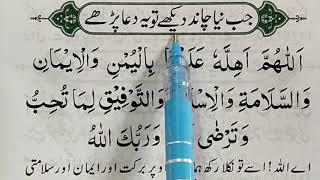 جب نیا چاند دیکھے تو یہ دعا پڑھے
اَللّٰهُمَّ اَهِلَّهٗ بِالْيُمْنِ وَالْاِيْمَانِ
وَالسَّلَامَةِ وَالتَّوْفِيْقِ لِمَا تُحِبُّ
وَتَرْضٰى وَرَبُّكَ اللّٰهُ
اے اللہ! اسے تو نکلا رکھ پر برکت اور ایمان اور سلامتی